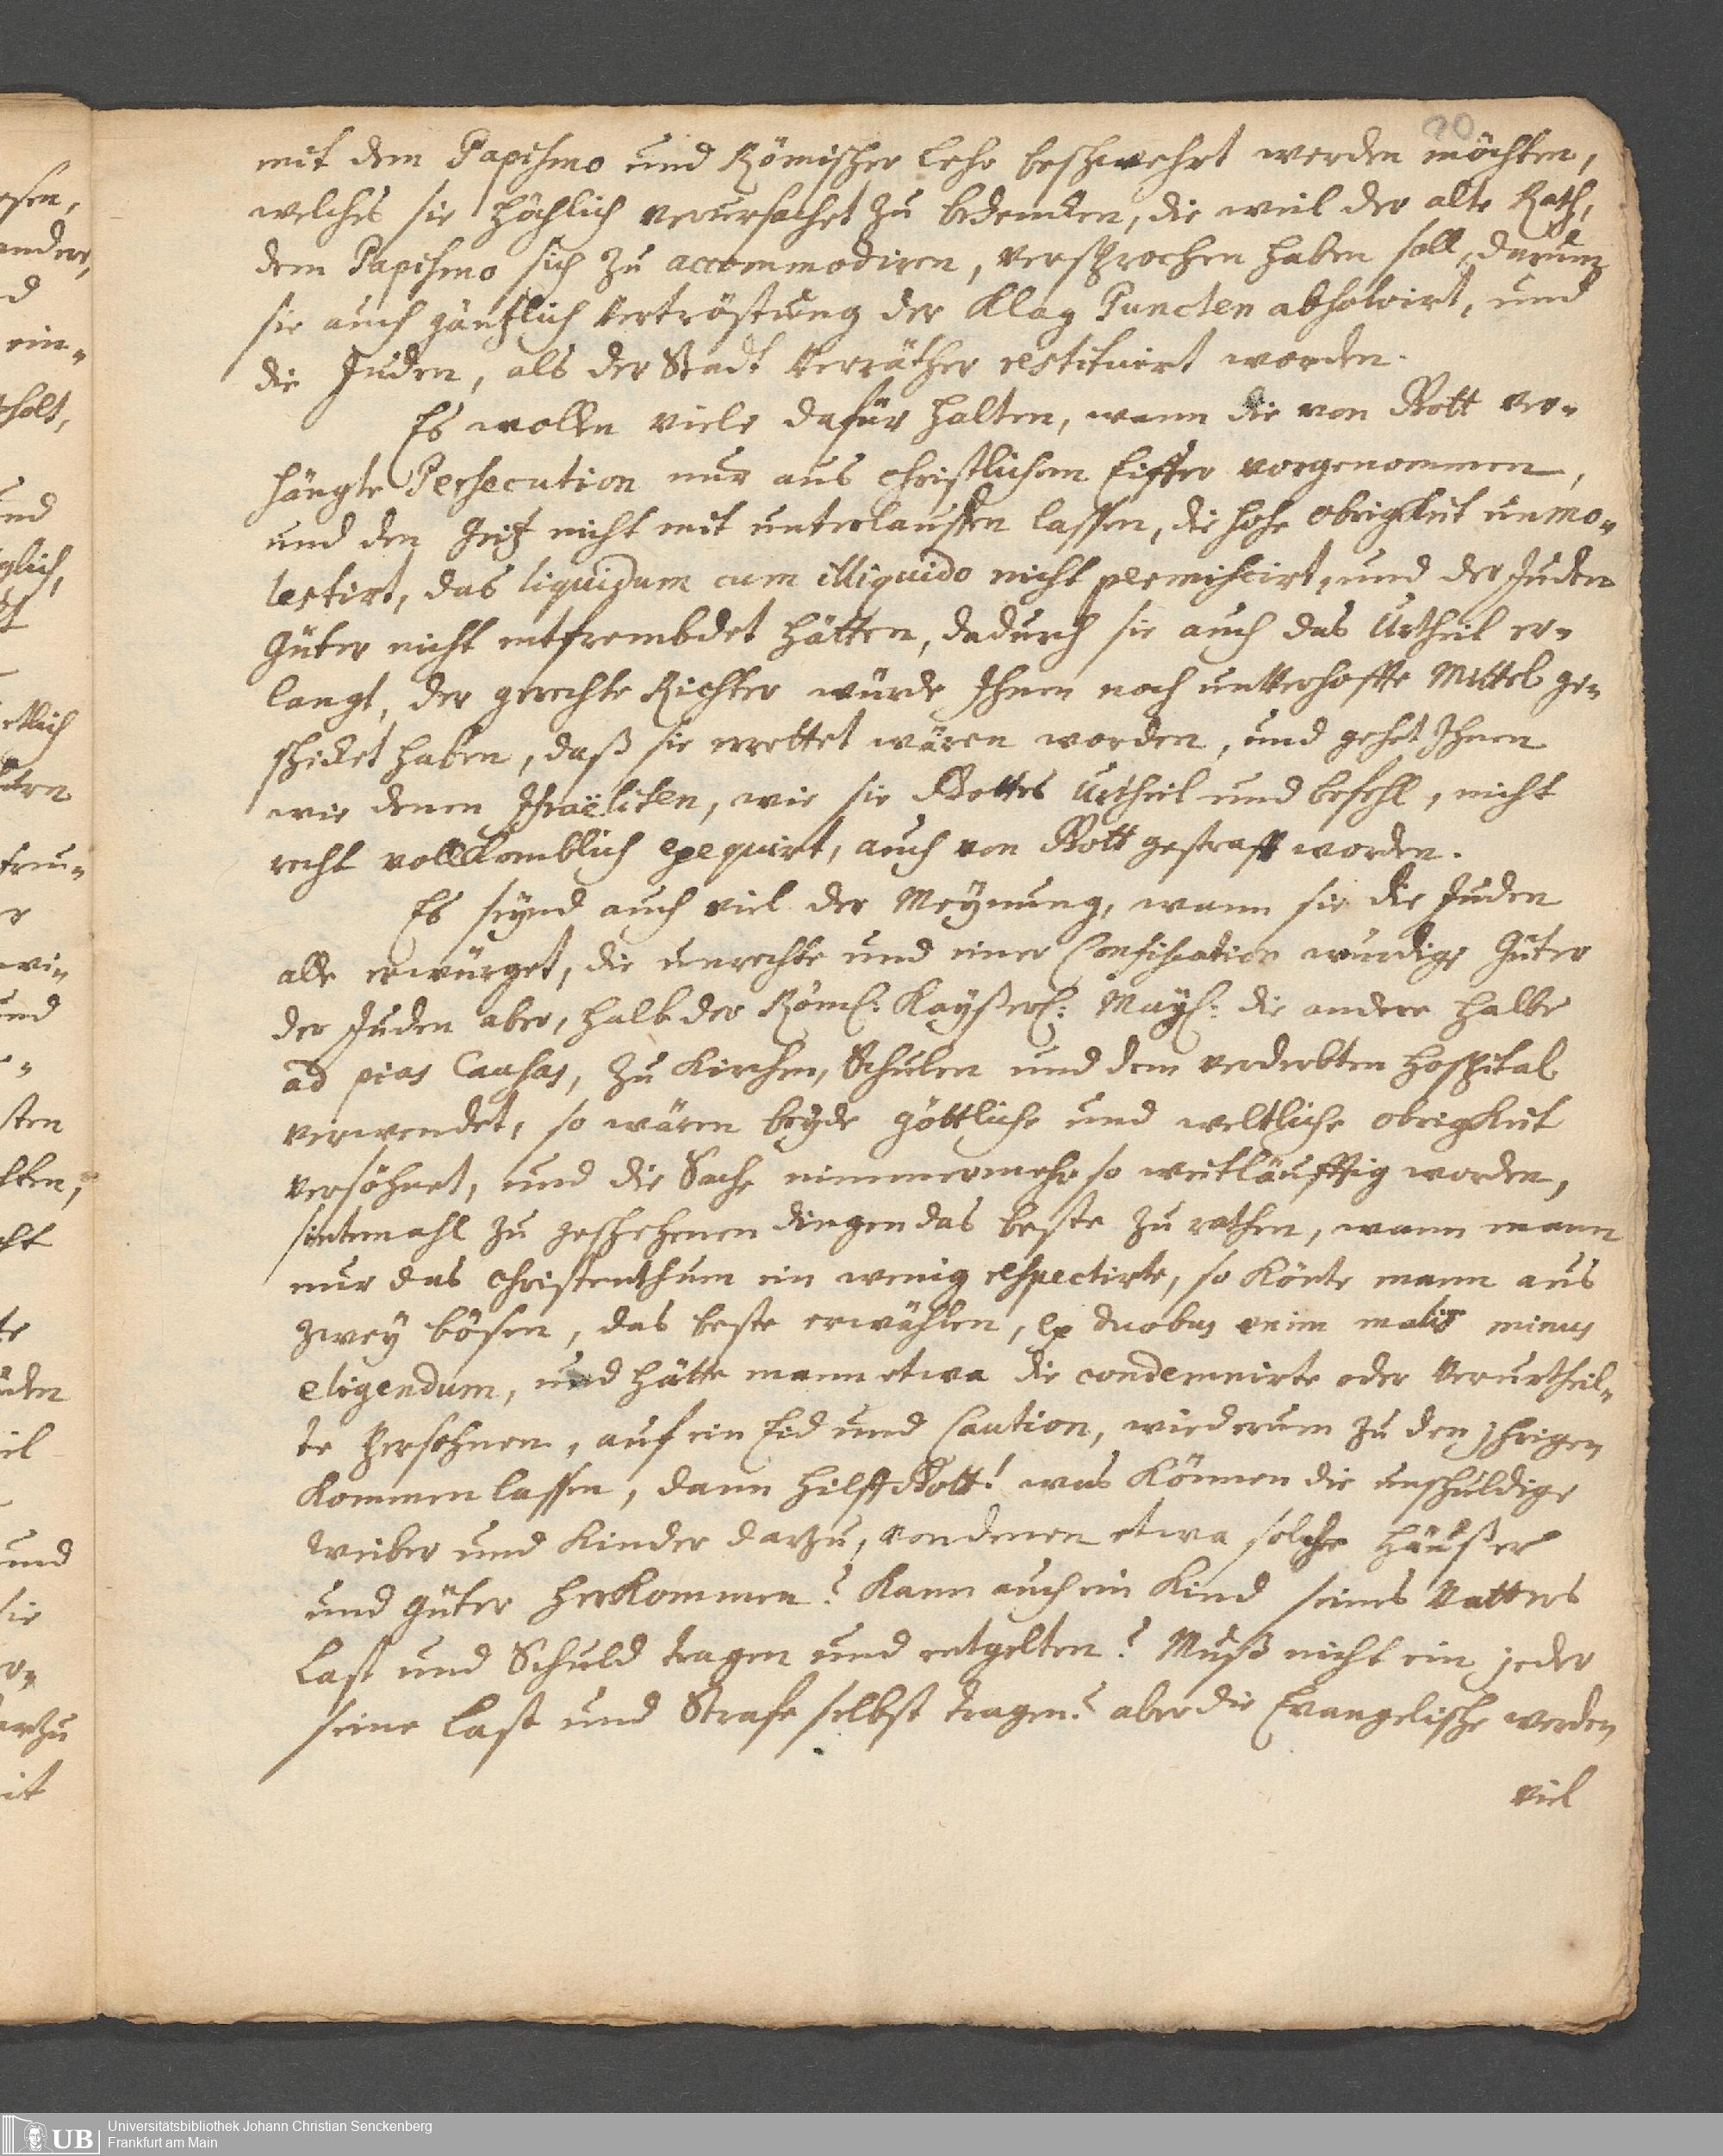 20
mit dem Papismo und Römischer Lehr beschwehrt werden möchten,
welches sie höchlich verursachet zu bedencken, die weil der alte Rath,
dem Papismo sich zu accommodiren, versprochen haben soll, darumb
sie auch gäntzlich Vertröstung der Klag Puncten absolvirt, und
die Juden, als der Stadt Verräther restituirt worden.
Es wollen viele dafür halten, wann die von Gott ver-
hängte Persecution nur aus christlichem Eiffer vorgenommen,
und den Geitz nicht mit unterlauffen lassen, die hohe obrigkeit unmo-
lestirt, das liquidum cum illiquido nicht permiscirt, und der Juden
Güter nicht entfrembdet hätten, dadurch sie auch das Urtheil er-
langt, der gerechte Richter würde Ihnen noch unverhoffte Mittel ge-
schicket haben, daß sie errettet wären worden, und gehet Ihnen
wie denen Israëliten, wie sie Gottes Urtheil und befehl, nicht
recht vollkomblich exequirt, auch von Gott gestrafft worden.
Es seynd auch viel der Meynung, wann sie die Juden
alle erwürget, die unrechte und einer Confiscation würdige Güter
der Juden aber, halb der Röml: Kayßerl: Mayl: die andere halbe
ad pias Causas, zu Kirchen, Schulen und dem verderbten Hospital
verwendet, so wären beyde göttliche und weltliche obrigkeit
versöhnet, und die Sache nimmermehr so weitläufftig worden,
sintemahl zu geschehenen dingen das beste zu rathen, wann mann
nur das Christenthum ein wenig respectirte, so könte mann aus
zwey bösen, das beste erwählen, ex duobus enim malis minus
eligendum, und hätte mann etwa die condemnirte oder Verurtheil-
te Persohnen, auf ein Eid und Caution, wiederum zu den ihrigen
kommen lassen, dann hilff Gott! was können die unschuldige
Weiber und Kinder darzu, von denen etwa solche Häußer
und Güter herkommen? kann auch ein Kind seines Vatters
Last und Schuld tragen und entgelten? Muß nicht ein jeder
seine Last und Strafe selbst tragen? aber die Evangelische werden
viel
UB Universitätsbibliothek Johann Christian Senckenberg
Frankfurt am Main